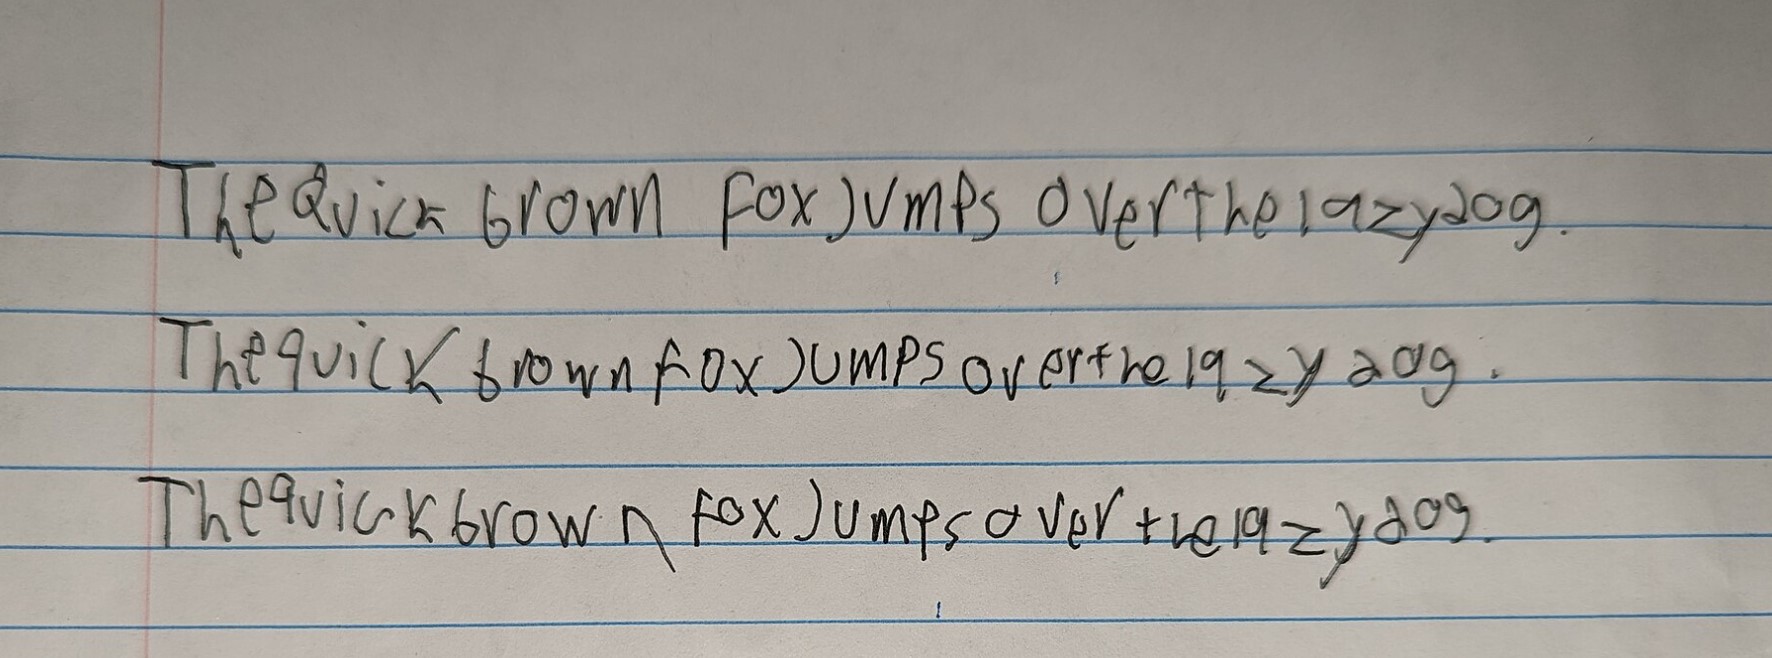 The Quick brown Fox Jumps Over the lazy dog.
The quick brown fox Jumps over the lazy dog.
The quick brown fox Jumps over the lazy dog.